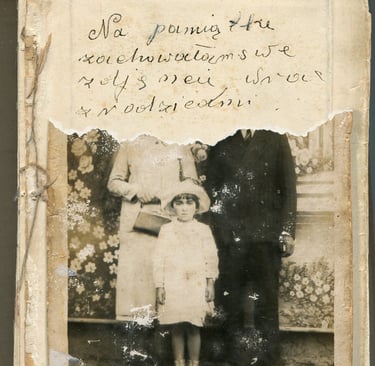 Na pamiątkę
zachowałam swe
zdjęncie wraz
z rodzicami.